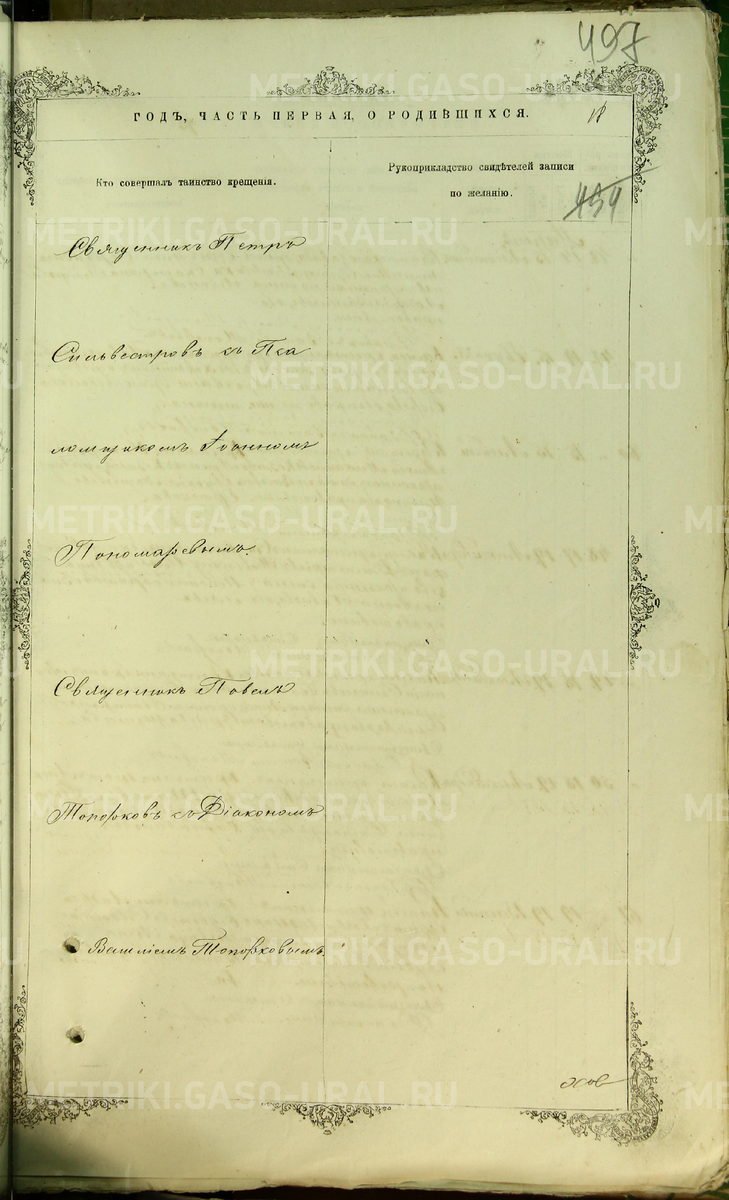 497
ГОДЪ, ЧАСТЬ ПЕРВАЯ, О РОДИВШИХСЯ.
Кто совершалъ таинство крещенія.
Рукоприкладство свидѣтелей записи
по желанію.
454
Священникъ Петръ
Сильвестровъ съ Пса
ломщикомъ Іоанномъ
Пономаревымъ.
Священникъ Павелъ
Топорковъ съ Діакономъ
Василіемъ Топорковымъ.
METRIKI.GASO-URAL.RU